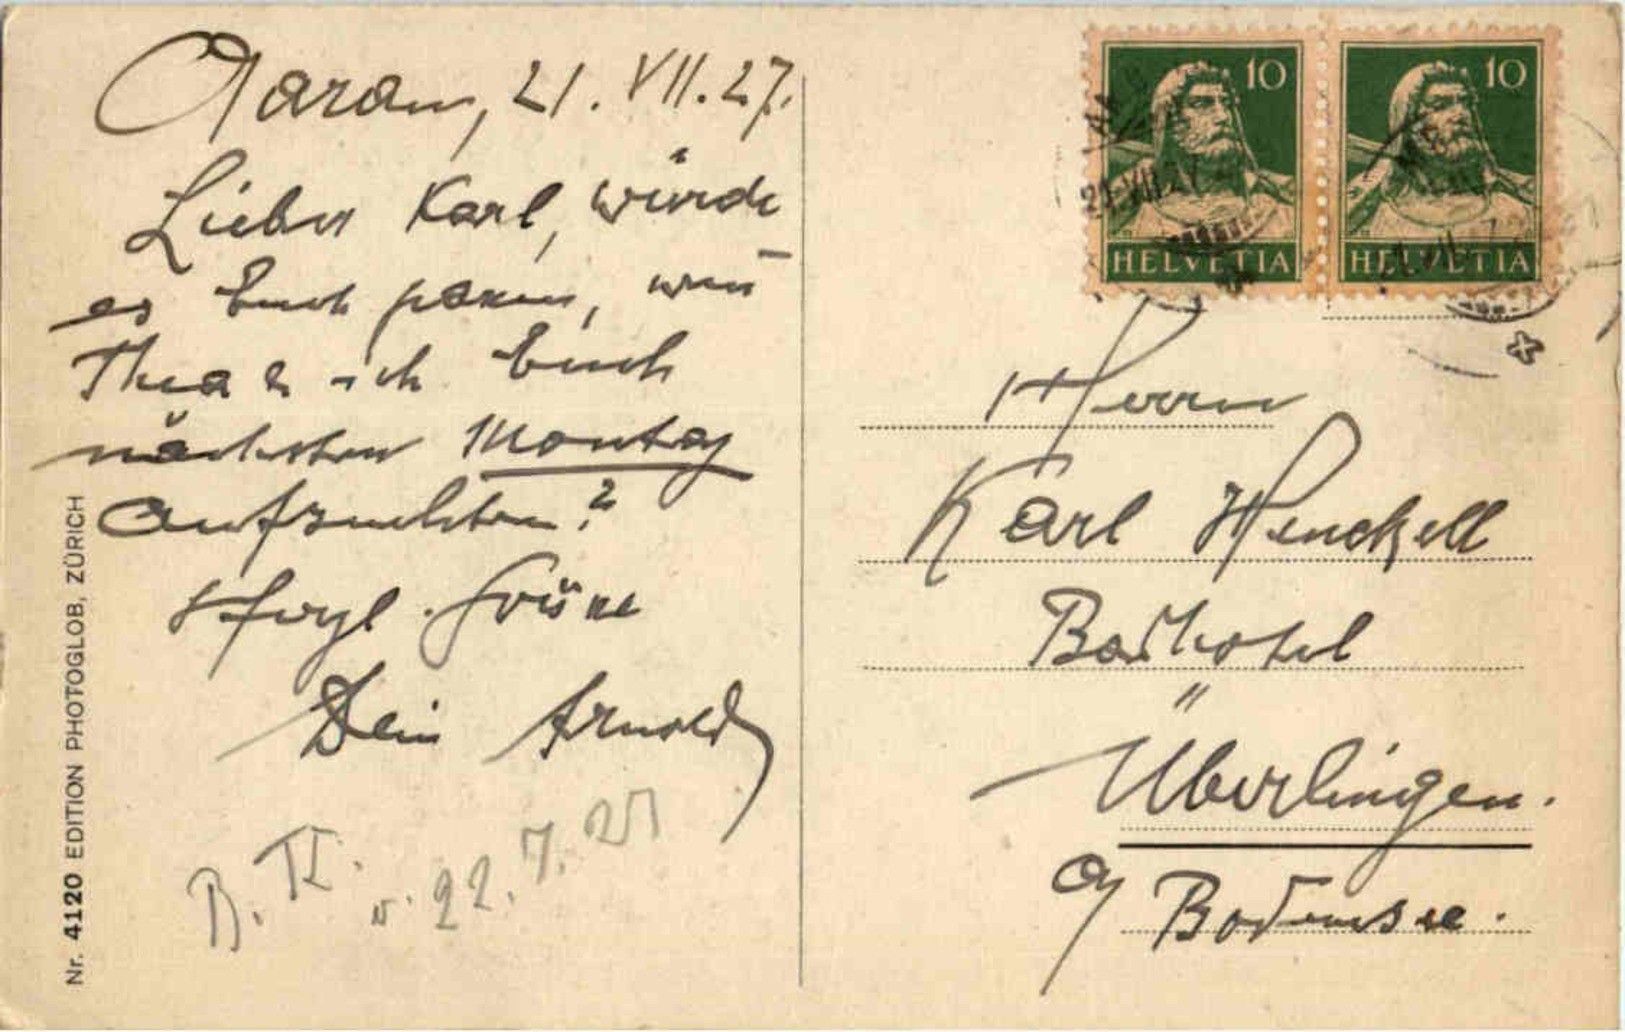 Aarau, 21. VII. 27.
Lieber Karl, würde
es Euch passen, wenn
Thea & ich Euch
nächsten Montag
aufsuchten?
Herzl. Grüsse
Dein Arnold
22. 7. 27
Nr. 4120 EDITION PHOTOGLOB, ZÜRICH
10
HELVETIA
10
HELVETIA
21.VII.27
Herrn
Karl Henckell
Badhotel
"
Überlingen.
a/ Bodensee.